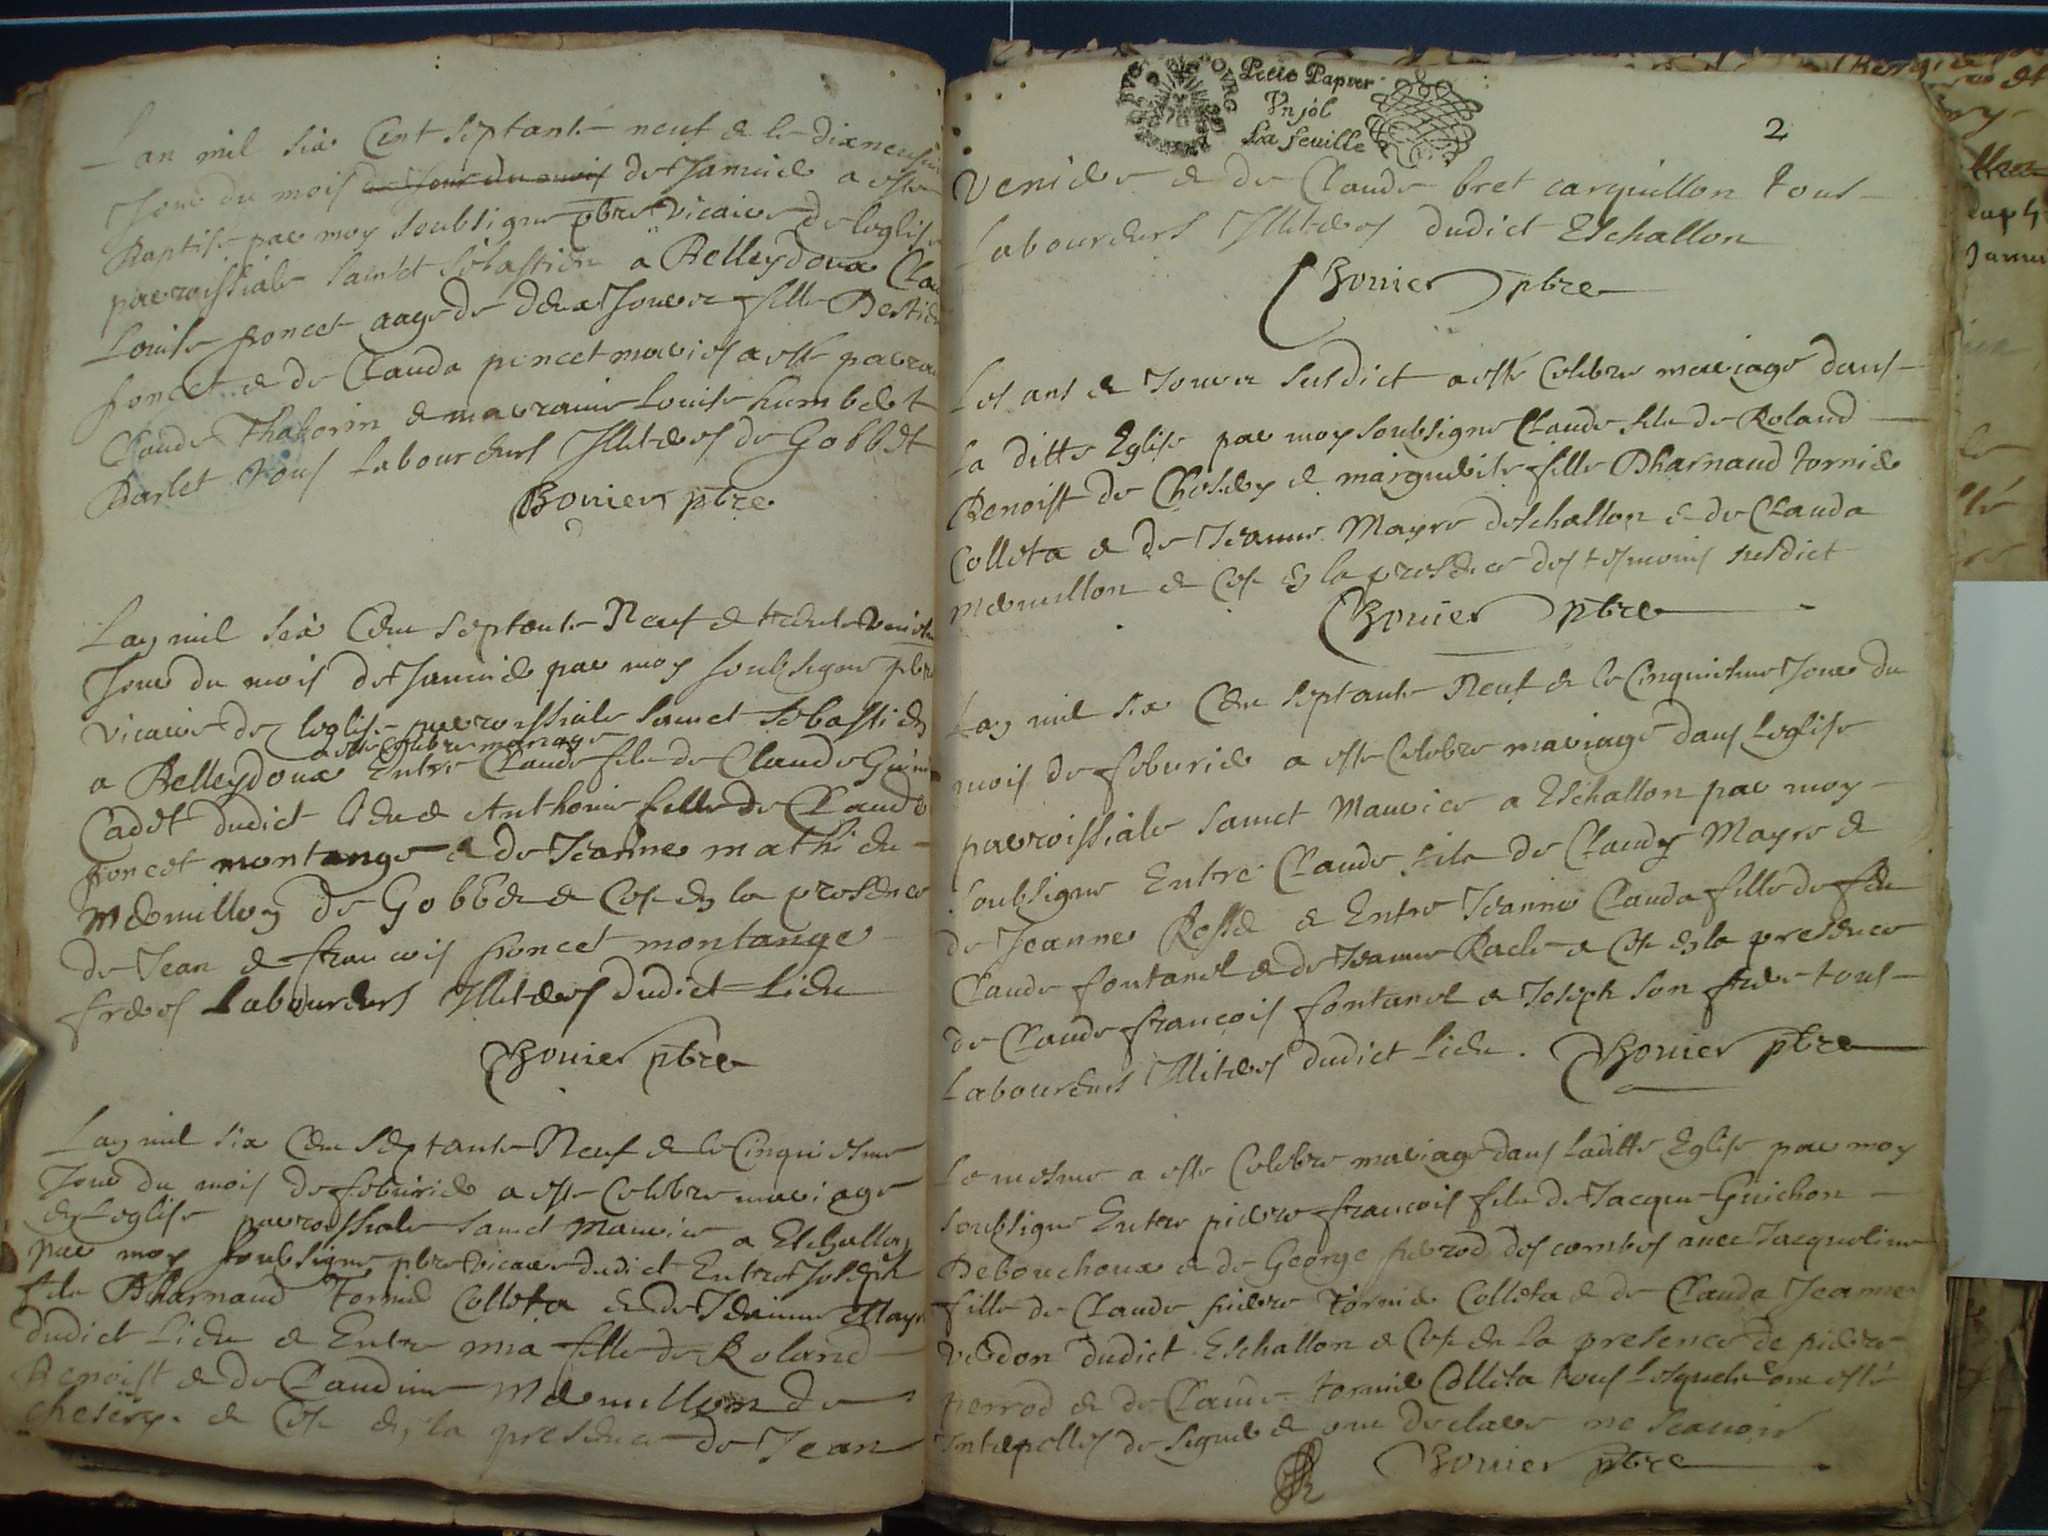 Lan mil six Cent septante neuf & le dixneufvie
Jour du mois de Janvier a esté
Baptisé par moy soubsigné pbre vicaire de leglise
parroissiale sainct sebastien a Belleydoux Cla
Louise poncet aagé de deux Jours fille Destien
poncet & de Clauda poncet mariés a esté parrain
Claude Thaborin & marraine Louise humbert
Barlet tous Laboureurs Illiterés de Gobbet
Bonier pbre
Lan mil six Cens septante Neuf &
Jour du mois de Janvier par moy soubsigné pbre
vicaire de leglise parroissiale sainct sebastien
a esté celebré mariage
a Belleydoux Entre Claude fils de Claude
Cadet dudict lieu & Anthoine fille de Claude
poncet montange & de Jeanne mathieu
Mermillon de Gobbet & Ce en la presence
de Jean & francois poncet montange
freres Laboureurs Illiterés dudict Lieu
Bonier pbre
Lan mil six Cens septante Neuf & le Cinquiesme
Jour du mois de feburier a esté Celebré mariage
en Leglise parroissiale sainct Maurice a Eschallon
par moy soubsigné pbre vicaire dudict Entre Joseph
fils Dharnaud Tornier Colleta & de Jeanne Mayre
dudict Lieu & Entre mia fille de Roland
Benoist & de Claudine Mermillion de
Cheisery & Ce en la presence de Jean
Petit Papier
Vn sol
La feuille
2
& de Claude bret carquillon tous
Laboureurs Illiterés dudict Eschallon
Bonier pbre
Les ans & Jours susdict a esté Celebré mariage dans
La ditte Eglise par moy soubsigné Claude fils de Roland
Benoist de Chesery & marguerite fille Dharnaud tornier
Colleta & de Jeanne Mayre deschallon & de Clauda
Mermillon & Ce en la presence des tesmoins susdict
Bonier pbre
Lan mil six Cens septante Neuf & le Cinquiesme Jour du
mois de feburier a esté Celebré mariage dans Leglise
parroissiale sainct Maurice a Eschallon par moy
soubsigné Entre Claude fils de Claudy Mayre &
de Jeanne Rosset & Entre Jeanne Clauda fille de feu
Claude fontanel & de Jeanne Racle & Ce en la presence
de Claude francois fontanel & Joseph son frere tous
Laboureurs Illiterés dudict Lieu. Bonier pbre
Le mesme a esté Celebré mariage dans Laditte Eglise par moy
soubsigné Entre pierre francois fils de Jacque Guichon
Debouchoux & de George perrod des combes avec Jacqueline
fille de Claude pierre Tornier Colleta & de Clauda Jeanne
verdon dudict Eschallon & Ce en la presence de pierre
perrod & de Claude tornier Colleta tous Lesquels ont esté
Interpellés de signer & ont declaré ne scavoir
Bonier pbre